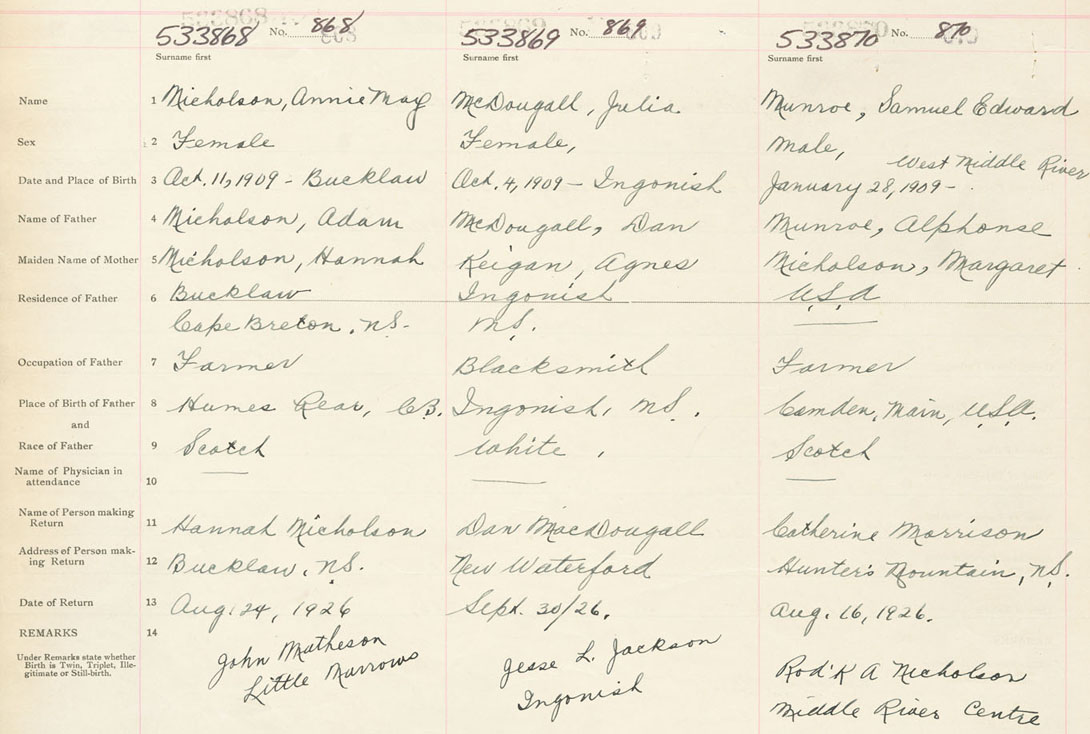 533868 No. 868 533869 No. 869 533870 No. 870
Surname first Surname first Surname first
Name 1 Nicholson, Annie May McDougall, Julia Munroe, Samuel Edward
Sex 2 Female Female, Male,
West Middle River
Date and Place of Birth 3 Oct. 11, 1909 - Bucklaw Oct. 4, 1909 - Ingonish January 28, 1909 -
Name of Father 4 Nicholson, Adam McDougall, Dan Munroe, Alphonse
Maiden Name of Mother 5 Nicholson, Hannah Keigan, Agnes Nicholson, Margaret
Residence of Father 6 Bucklaw Ingonish U.S.A
Cape Breton. N.S. N.S.
Occupation of Father 7 Farmer Blacksmith Farmer
Place of Birth of Father 8 Humes Rear, C.B. Ingonish, N.S. Camden, Main, U.S.A.
and
Race of Father 9 Scotch White, Scotch
Name of Physician in
attendance 10
Name of Person making
Return 11 Hannah Nicholson Dan MacDougall Catherine Morrison
Address of Person mak-
ing Return 12 Bucklaw, N.S. New Waterford Hunter's Mountain, N.S.
Date of Return 13 Aug. 24, 1926 Sept. 30/26. Aug. 16, 1926.
REMARKS 14
Under Remarks state whether
Birth is Twin, Triplet, Ille-
gitimate or Still-birth.
John Matheson Jesse L. Jackson Rod'k A Nicholson
Little Narrows Ingonish Middle River Centre